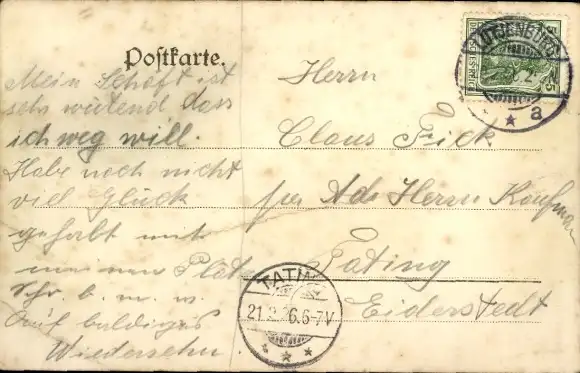 Postkarte.
Mein Scheff ist
sehr wütend dass
ich weg will.
Habe noch nicht
viel Glück
gehabt mit
meinen Plat
Schr. b. m. w.
Auf baldiges
Wiedersehn.
Herrn
Claus Fick
per Adr Herrn Kaufman
Tating
Eiderstedt
LÜTJENBURG
a
TATING
21.2. 6.6-7V